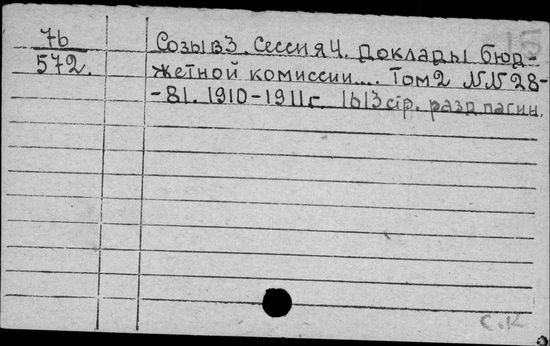 7b
572.
Созыв 3. Сессия 4. Доклады бюд-
жетной комиссии.... Том 2 NN 28-
-81. 1910-1911 г. 1613 стр. разд. пагин.
С.К